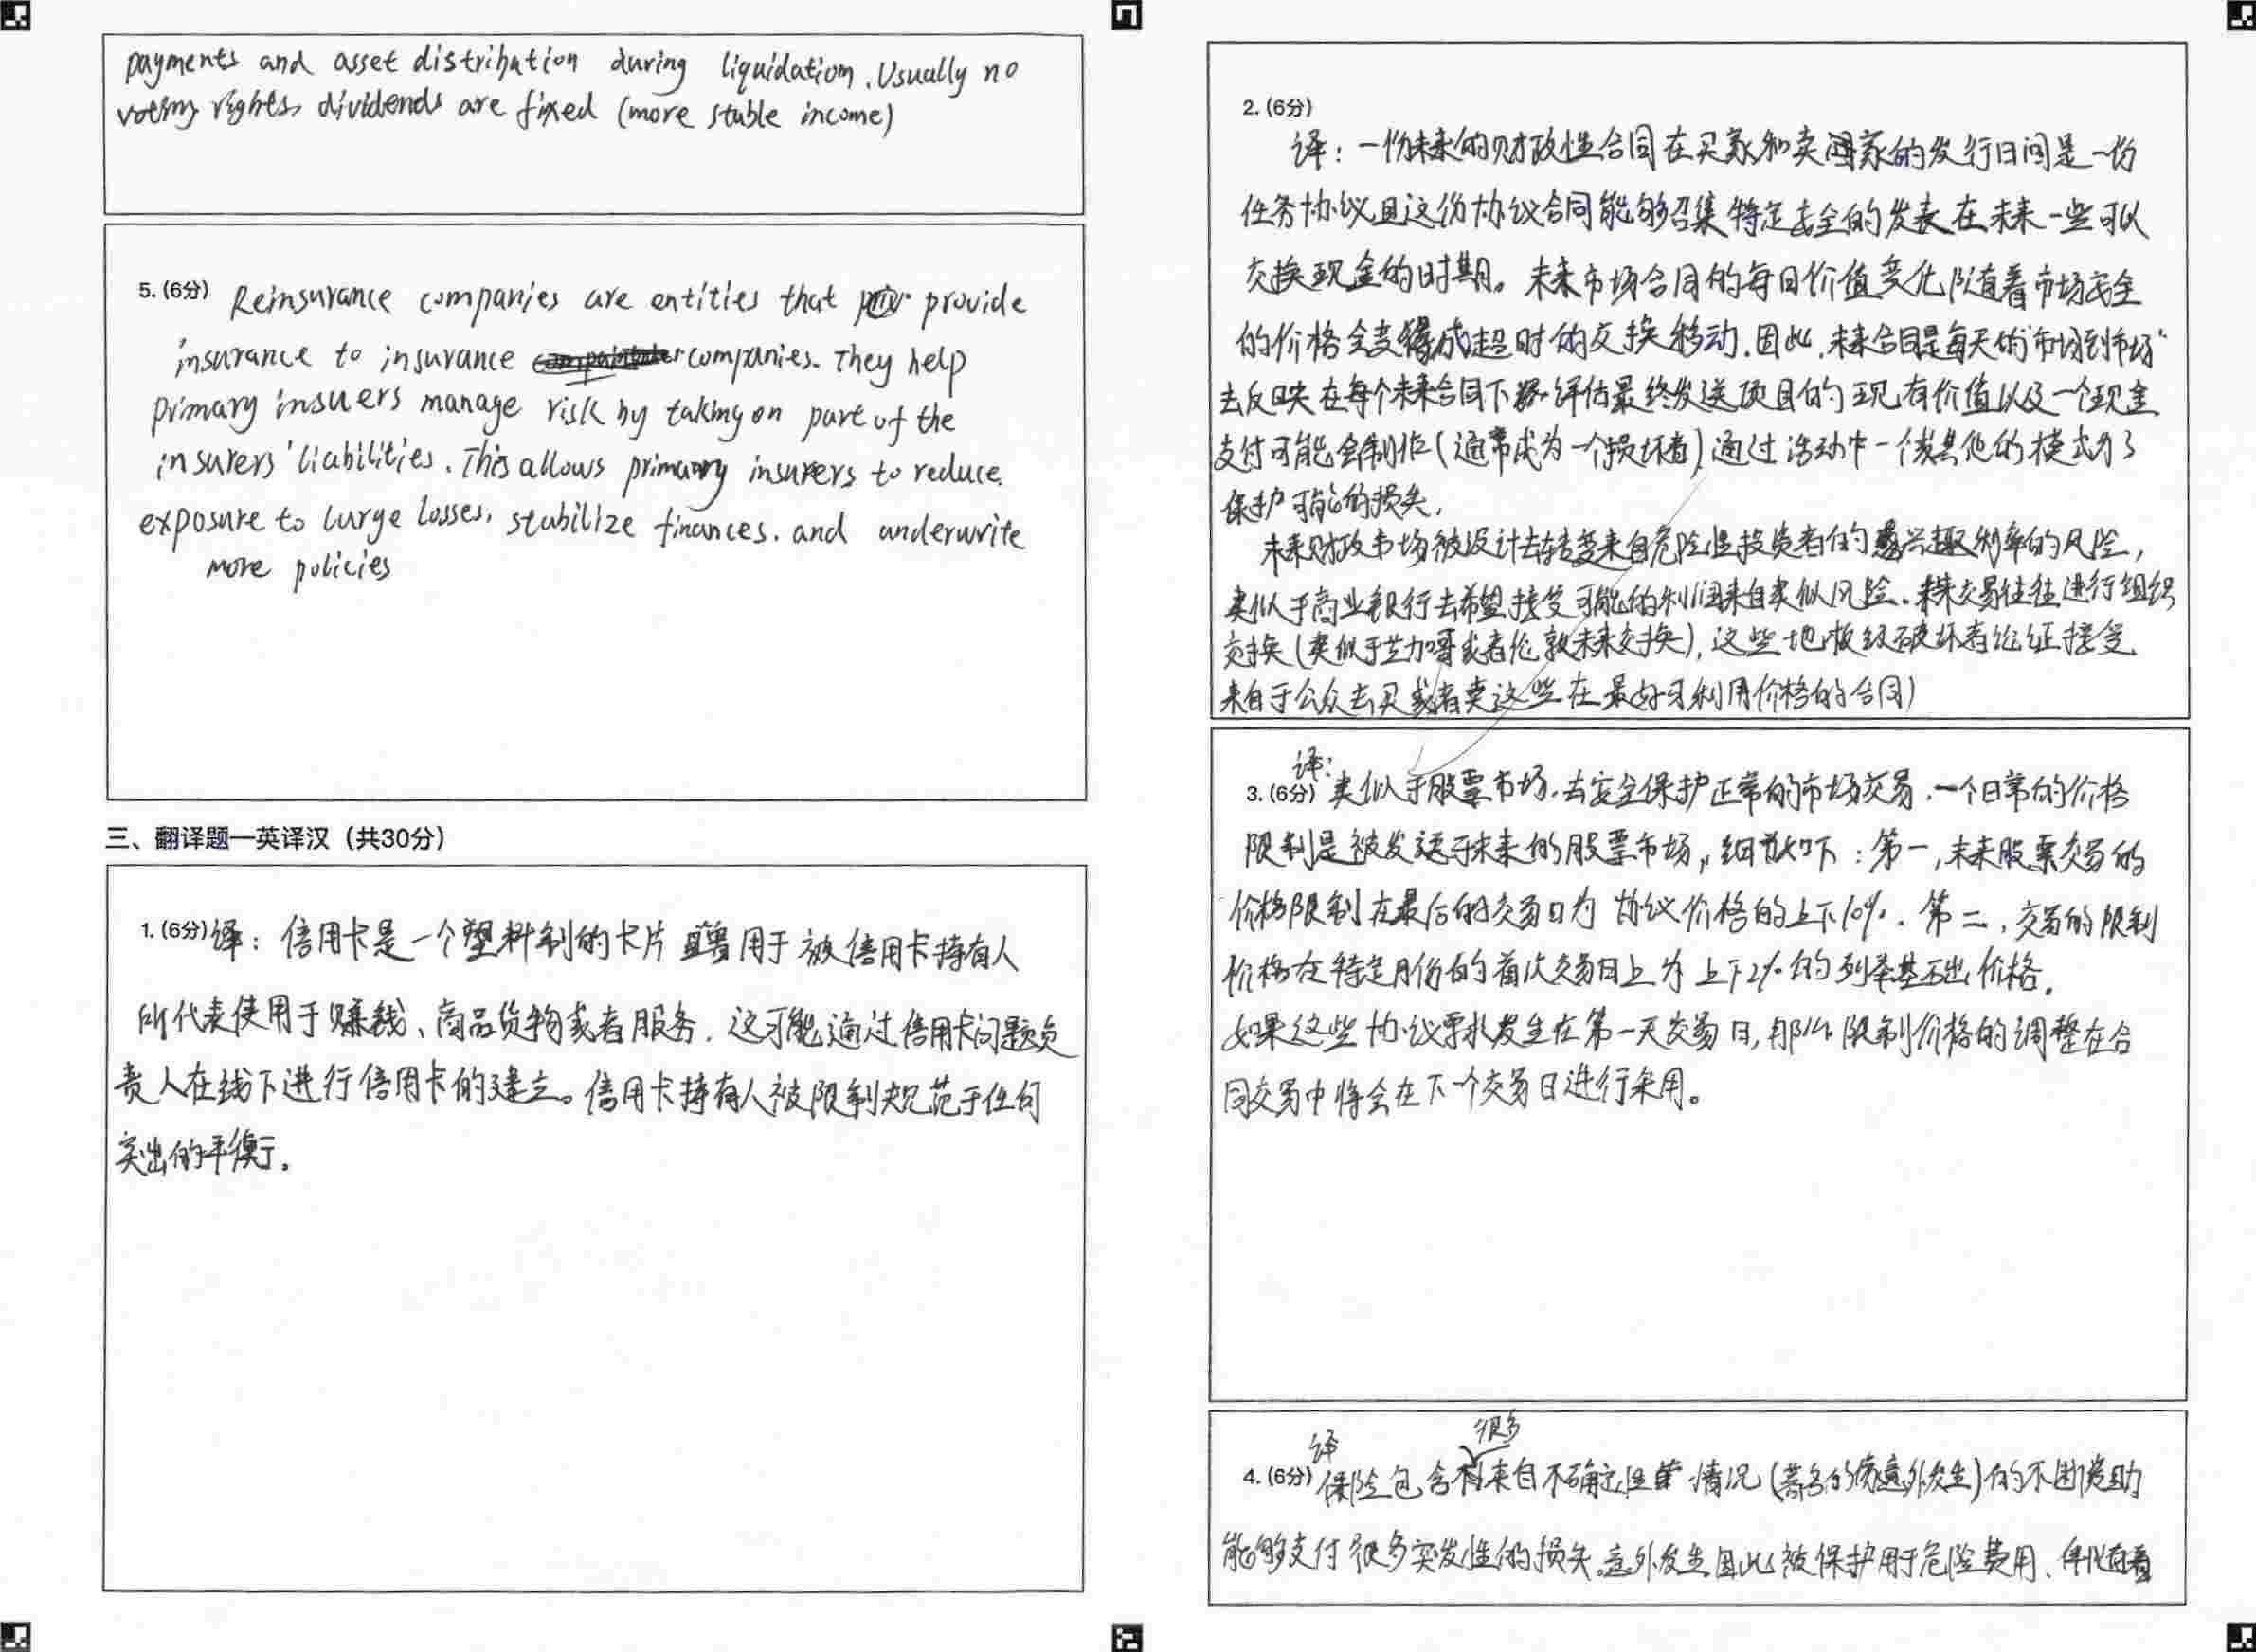 payments and asset distribution during liquidation. Usually no
voting rights, dividends are fixed (more stable income)
5. (6分) Reinsurance companies are entities that provide
insurance to insurance companies. They help
primary insuers manage risk by taking on part of the
insurers' liabilities. This allows primary insurers to reduce
exposure to large losses, stabilize finances. and underwrite
more policies
三、翻译题—英译汉（共30分）
1. (6分) 译：信用卡是一个塑料制的卡片 用于被信用卡持有人
所代表使用于赚钱、商品货物或者服务．这可能通过信用卡问题负
责人在线下进行信用卡的建立。信用卡持有人被限制规范于任何
突出的平衡。
2. (6分)
译：一份未来的财政性合同在买家和卖家的发行日间是一份
任务协议且这份协议合同能够召集特定安全的发表在未来一些可以
交换现金的时期。未来市场合同的每日价值变化随着市场安全
的价格会变成超时的交换移动．因此，未来合同是每天的“市场到市场”
去反映在每个未来合同下评估最终发送项目的现有价值以及一个现金
支付可能会制作(通常成为一个损坏者)通过活动中一个其他的模式为了
保护可能的损失．
未来财政市场被设计去转变来自危险性投资者的兴趣利率的风险，
类似于商业银行去希望接受可能的利润来自类似风险．未来交易往往进行组织
交换(类似于芝加哥或者伦敦未来交换)，这些地板级破坏者论证接受
来自于公众去买或者卖这些在最好可利用价格的合同)
译：
3. (6分) 类似于股票市场．去安全保护正常的市场交易．一个日常的价格
限制是被发送于未来的股票市场，细节如下：第一，未来股票交易的
价格限制在最后的交易日为协议价格的上下10%．第二，交易的限制
价格在特定月份的首次交易日上为上下2%的列举基础价格．
如果这些协议要求发生在第一天交易日，那么限制价格的调整在合
同交易中将会在下一个交易日进行采用。
译 很多
4. (6分) 保险包含来自不确定性情况(著名的意外发生)的不断资助
能够支付很多突发性的损失．意外发生因此被保护用于危险费用、